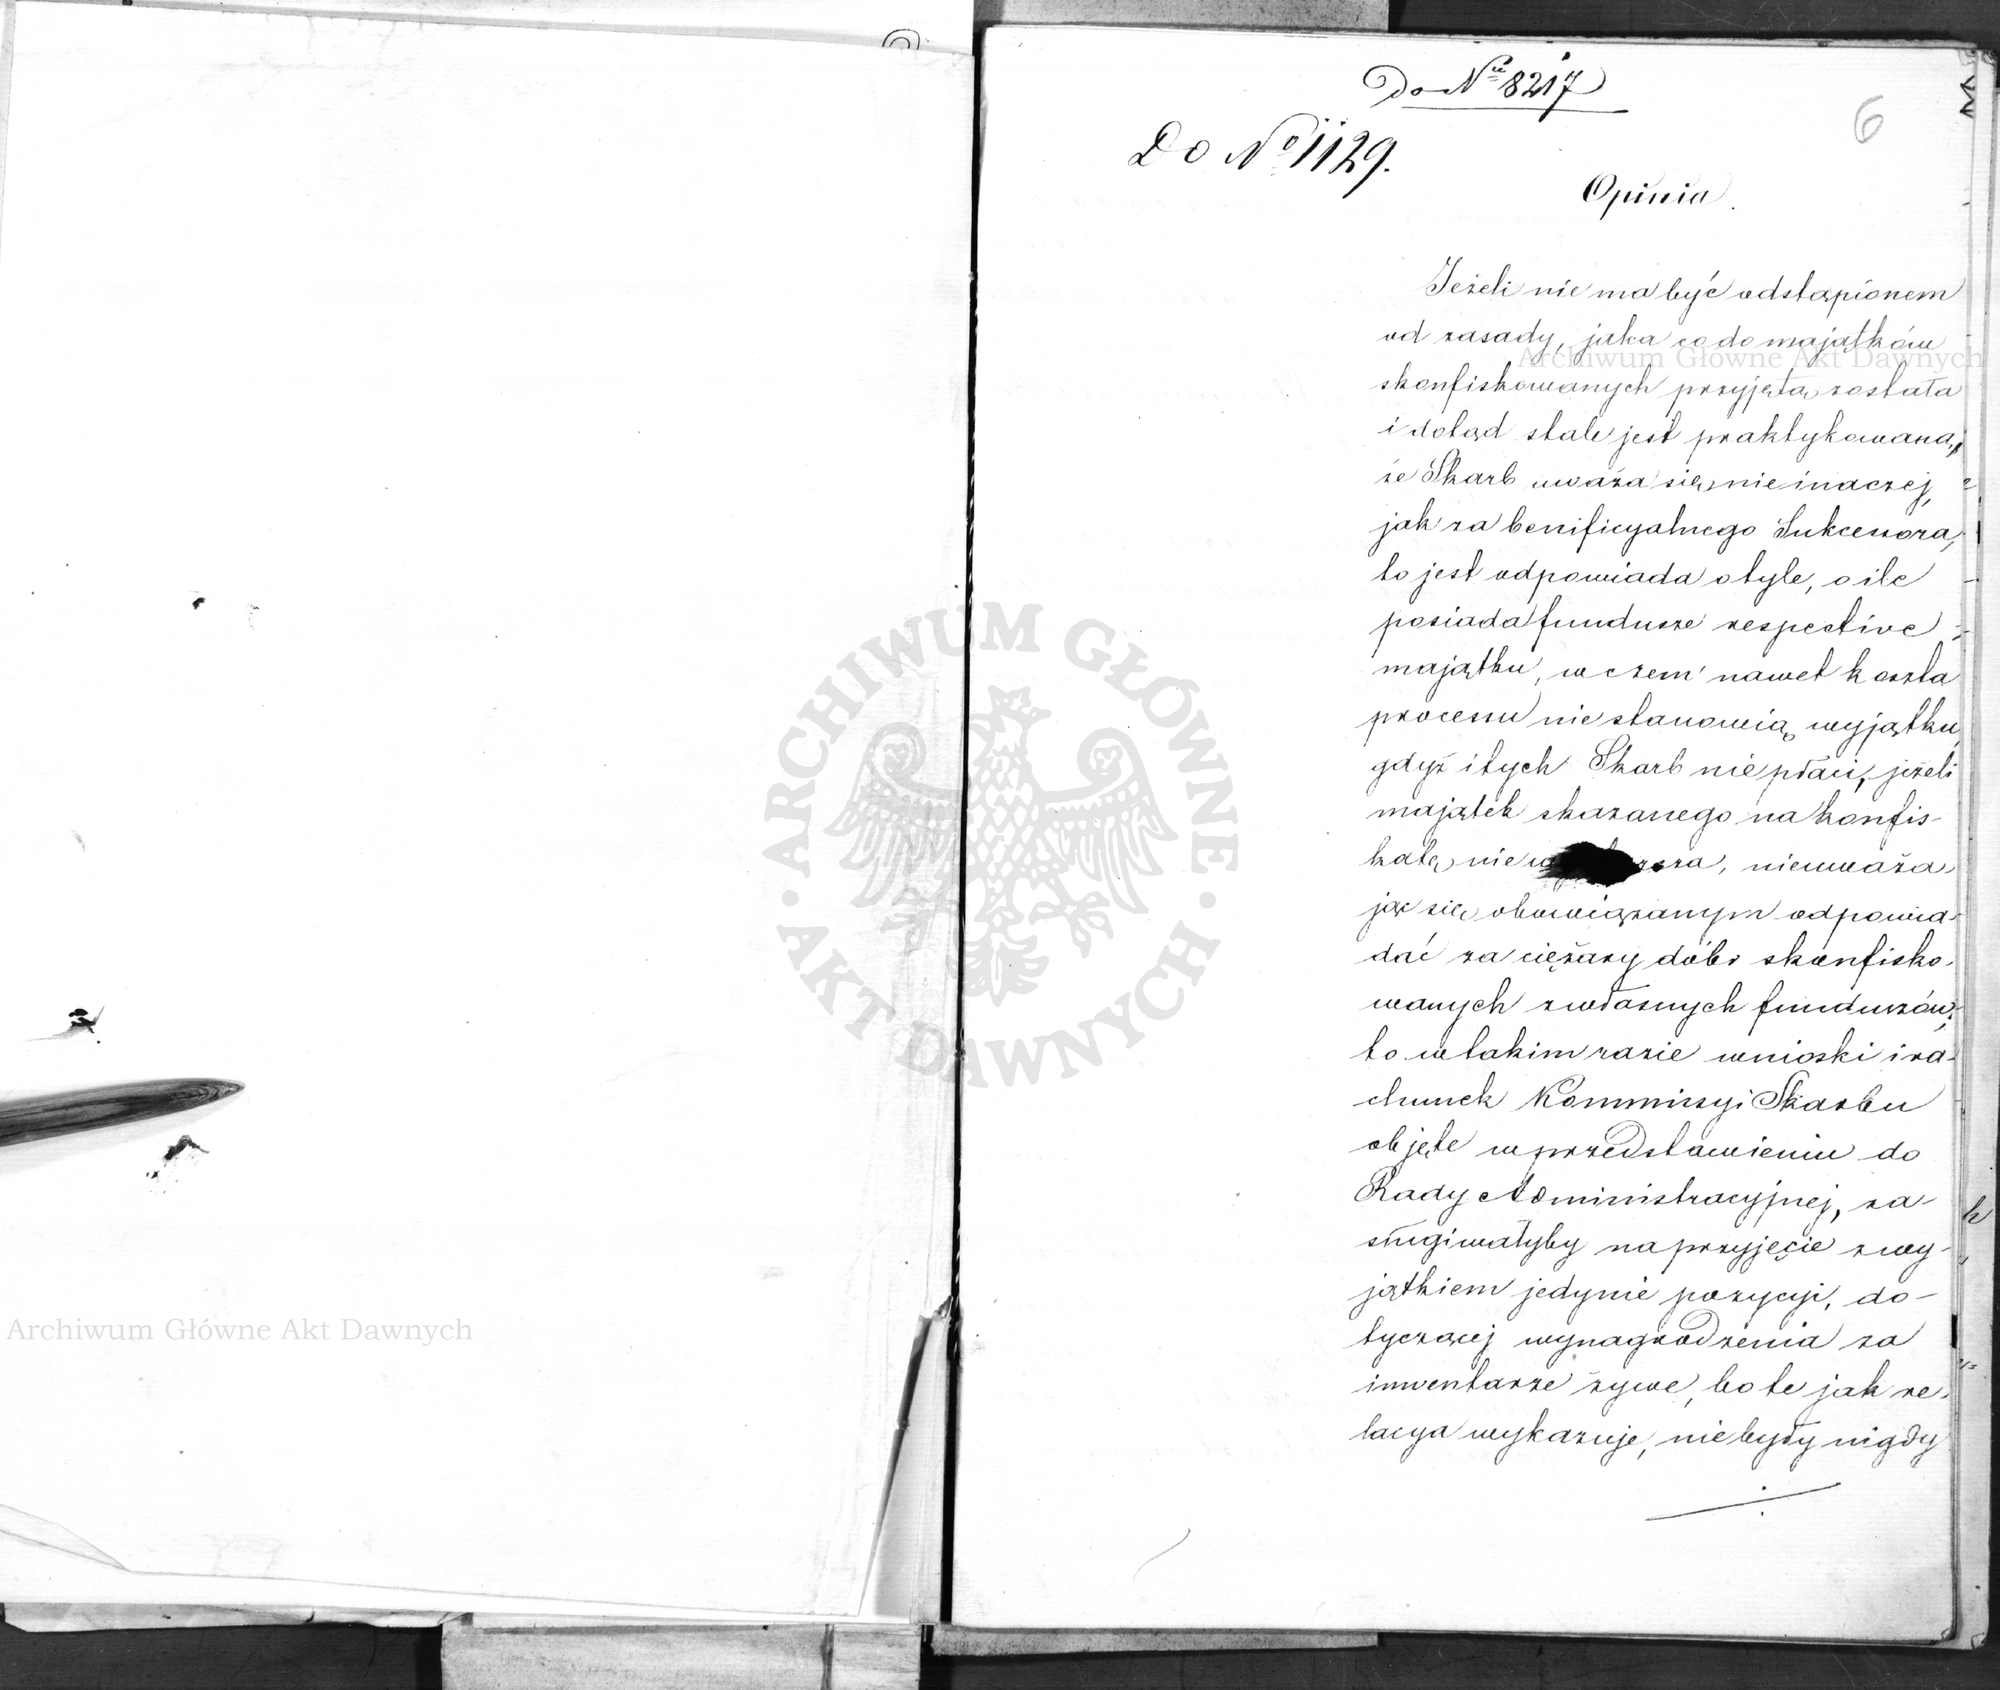 Do Nru 8217
6
Do No 1129.
Opinia.
Jeżeli nie ma być odstąpionem
od zasady, jaka co do majątków
skonfiskowanych przyjętą została
i dotąd stale jest praktykowaną,
że Skarb uważa się nie inaczej,
jak za benificyalnego Sukcessora,
to jest odpowiada o tyle, o ile
posiada fundusze respective
majątku, w czem nawet koszta
processu nie stanowią wyjątku,
gdyż i tych Skarb nie płaci, jeżeli
majątek skazanego na konfis-
katę nie, nieuważa-
jąc się obowiązanym odpowia-
dać za ciężary dóbr skonfisko-
wanych z własnych funduszów,
to w takim razie wnioski i ra-
chunek Kommissyi Skarbu
objęte w przedstawieniu do
Rady Administracyjnej, za-
sługiwałyby na przyjęcie z wy-
jątkiem jedynie pozycyi, do-
tyczącej wynagrodzenia za
inwentarze żywe, bo te jak re-
lacya wykazuje, nie były nigdy
Archiwum Główne Akt Dawnych
ARCHIWUM GŁÓWNE
AKT DAWNYCH
Archiwum Główne Akt Dawnych